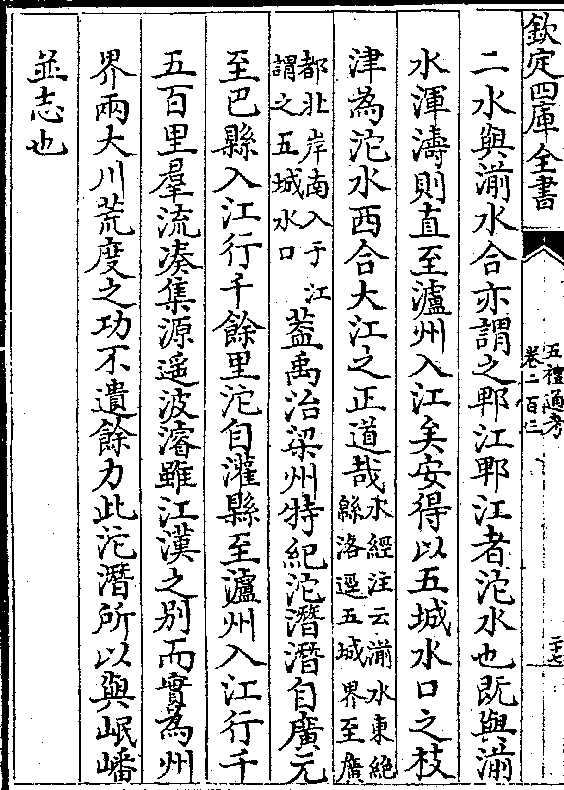 欽定四庫全書
五禮通考
卷二百三
二十七
二水與湔水合亦謂之郫江郫江者沱水也既與湔
水渾濤則直至瀘州入江矣安得以五城水口之枝
津為沱水西合大江之正道哉水經注云湔水東絶
緜洛逕五城界至廣
都北岸南入于江
謂之五城水口蓋禹治梁州特紀沱潛潛自廣元
至巴縣入江行千餘里沱自灌縣至瀘州入江行千
五百里羣流湊集源遥波濬雖江漢之别而實為州
界兩大川荒度之功不遺餘力此沱潛所以與岷嶓
並志也